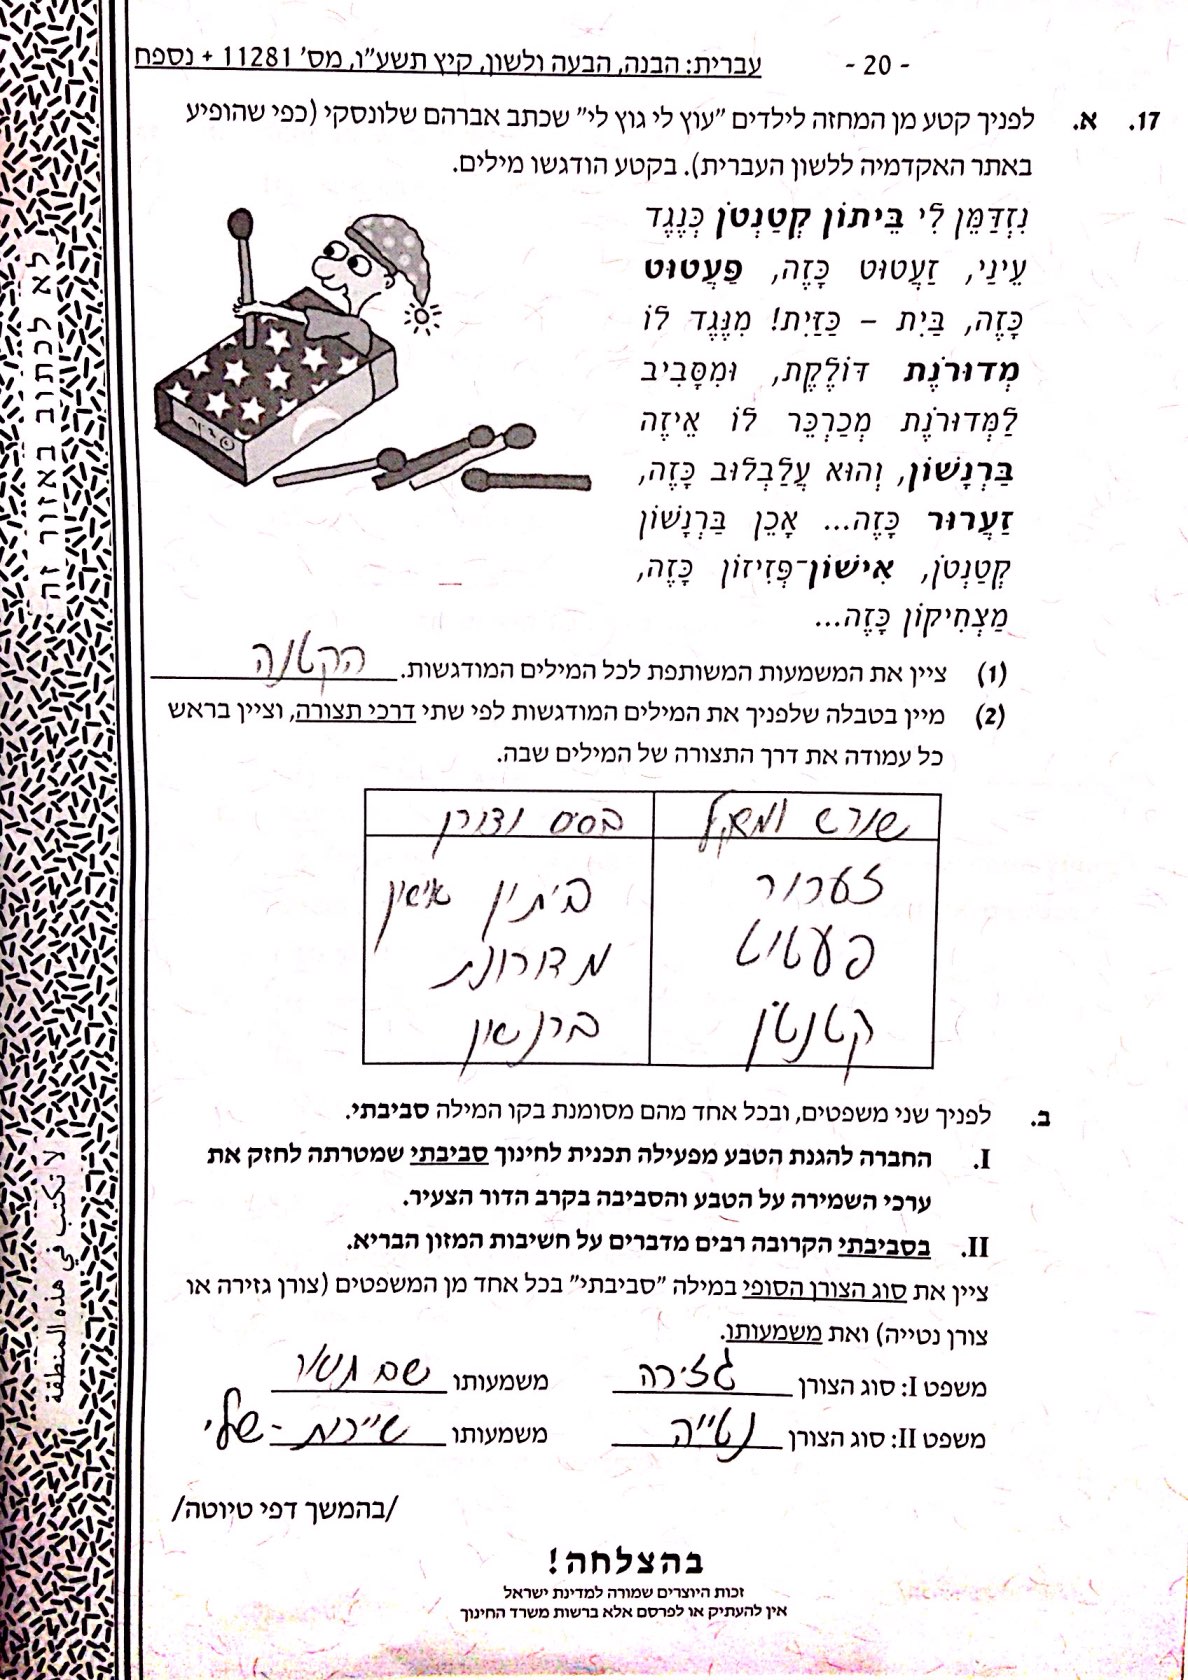 - 20 - עברית: הבנה, הבעה ולשון, קיץ תשע"ו, מס' 11281 + נספח
17. א. לפניך קטע מן המחזה לילדים "עוץ לי גוץ לי" שכתב אברהם שלונסקי (כפי שהופיע
באתר האקדמיה ללשון העברית). בקטע הודגשו מילים.
נִזְדַּמֵּן לִי בֵּיתוֹן קְטַנְטֹן כְּנֶגֶד
עֵינַי, זַעֲטוּט כָּזֶה, פַּעֲטוּט
כָּזֶה, בַּיִת – כַּזַּיִת! מִנֶּגֶד לוֹ
מְדוּרֹנֶת דּוֹלֶקֶת, וּמִסָּבִיב
לַמְּדוּרֹנֶת מְכַרְכֵּר לוֹ אֵיזֶה
בַּרְנָשׁוֹן, וְהוּא עֲלַבְלוּב כָּזֶה,
זַעֲרוּר כָּזֶה... אָכֵן בַּרְנָשׁוֹן
קְטַנְטֹן, אִישׁוֹן־פְּזִיזוֹן כָּזֶה,
מַצְחִיקוֹן כָּזֶה...
(1) ציין את המשמעות המשותפת לכל המילים המודגשות. הקטנה
(2) מיין בטבלה שלפניך את המילים המודגשות לפי שתי דרכי תצורה, וציין בראש
כל עמודה את דרך התצורה של המילים שבה.
שורש ומשקל בסיס וצורן
זערור ביתון אישון
פעטוט מדורונת
קטנטן ברנשון
ב. לפניך שני משפטים, ובכל אחד מהם מסומנת בקו המילה סביבתי.
I. החברה להגנת הטבע מפעילה תכנית לחינוך סביבתי שמטרתה לחזק את
ערכי השמירה על הטבע והסביבה בקרב הדור הצעיר.
II. בסביבתי הקרובה רבים מדברים על חשיבות המזון הבריא.
ציין את סוג הצורן הסופי במילה "סביבתי" בכל אחד מן המשפטים (צורן גזירה או
צורן נטייה) ואת משמעותו.
משפט I: סוג הצורן גזירה משמעותו שם תואר
משפט II: סוג הצורן נטייה משמעותו שייכות - שלי
/בהמשך דפי טיוטה/
בהצלחה!
זכות היוצרים שמורה למדינת ישראל
אין להעתיק או לפרסם אלא ברשות משרד החינוך
לא לכתוב באזור זה
لا تكتب في هذه المنطقة